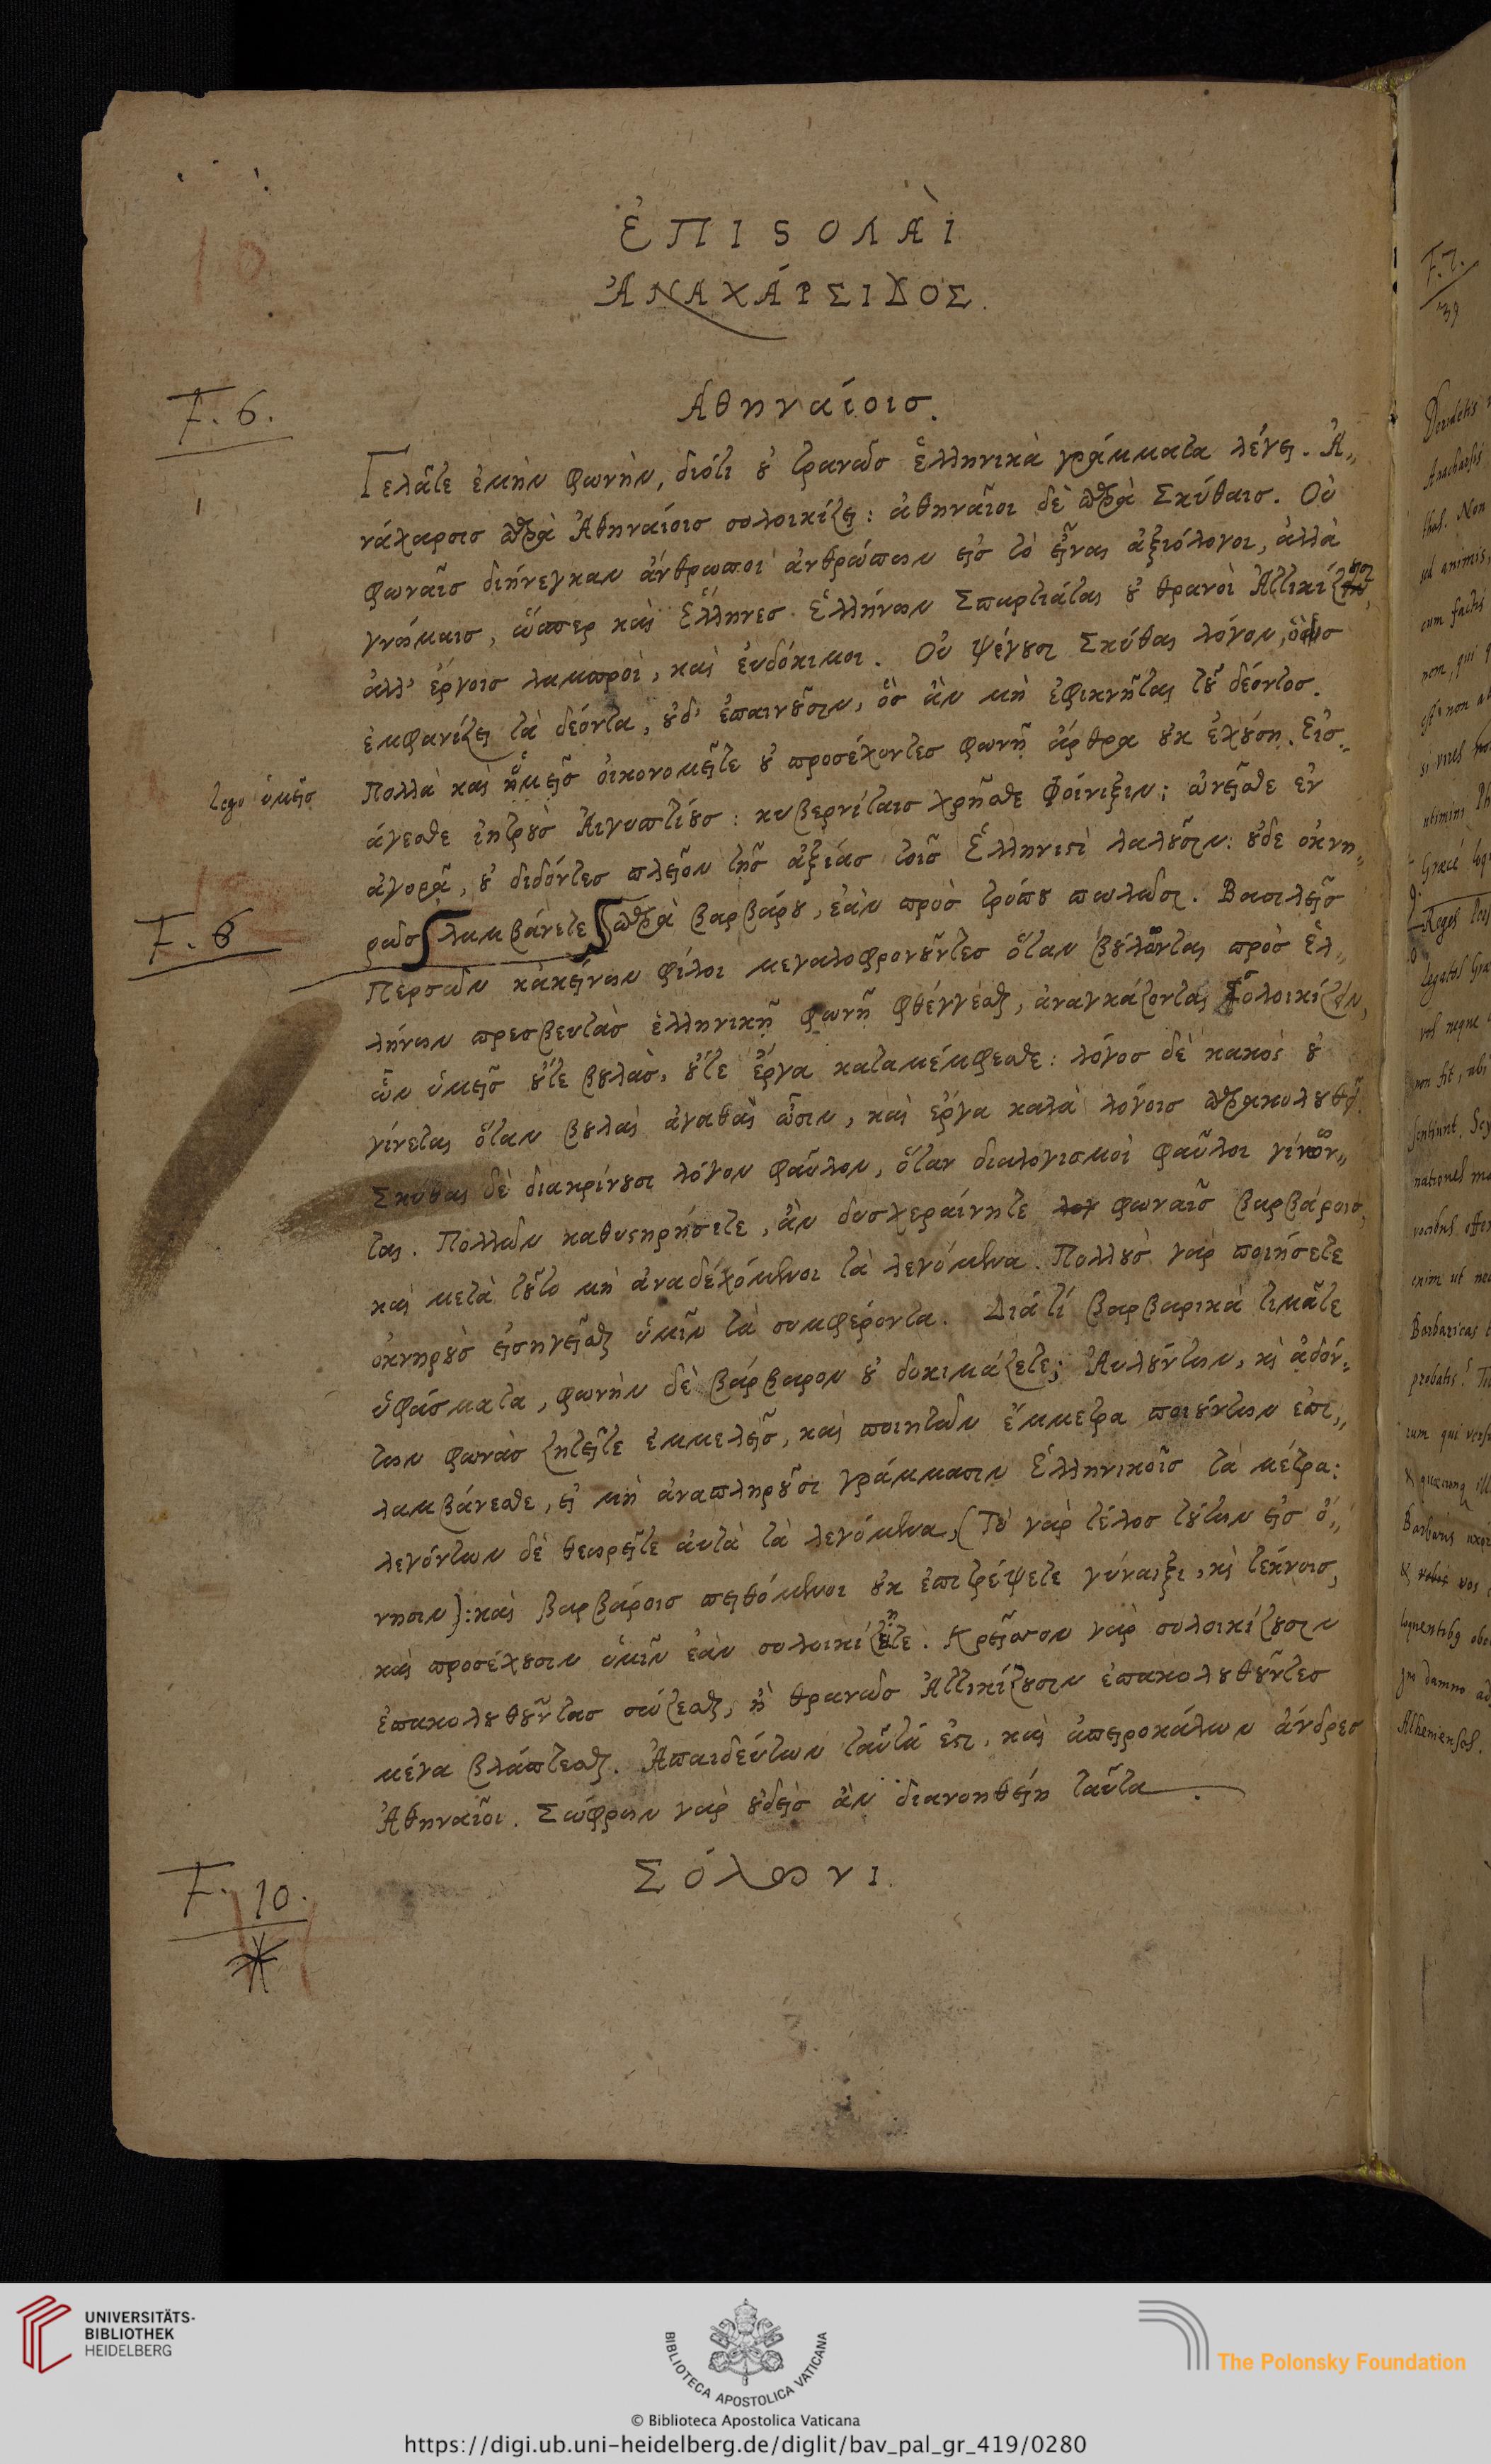 ἘΠΙSΟΛΑῚ
ἈΝΑΧΆΡΣΙΔΟΣ.
F. 6.
Ἀθηναίοις.
Γελᾶτε ἐμὴν φωνὴν, διότι ȣ̓ τρανῶς ἑλληνικὰ γράμματα λέγει. Ἀ-
νάχαρσις παρὰ Ἀθηναίοις σολοικίζει: ἀθηναῖοι δὲ παρὰ Σκύθαις. Οὐ
φωναῖς διήνεγκαν ἄνθρωποι ἀνθρώπων εἰς τὸ εἶναι ἀξιόλογοι, ἀλλὰ
γνώμαις, ὥσπερ καὶ Ἕλληνες Ἑλλήνων Σπαρτιάται ȣ̓ θρανοὶ Ἀττικίζ
ἀλλ' ἔργοις λαμπροὶ, καὶ ἐυδόκιμοι. Οὐ ψέγȣσι Σκύθαι λόγον, ὃς
ἐμφανίζει τὰ δέοντα, ȣ̓δ' ἐπαινȣ͂σιν, ὃς ἂν μὴ ἐφικνῆται τȣ͂ δέοντος.
lego ὑμεῖς
Πολλὰ καὶ ὑμεῖς οἰκονομεῖτε ȣ̓ προσέχοντες φωνῇ ἄρθρα ȣ̓κ ἐχȣ́σῃ. Εἰσ-
άγεσθε ἰητρȣ̀ς Ἀιγυπτίȣς: κυβερνίταις χρῆσθε Φοίνιξιν: ὠνεῖσθε ἐν
ἀγορᾷ, ȣ̓ διδόντες πλεῖον τῆς ἀξίας τοῖς Ἑλληνιστὶ λαλȣ͂σιν: ȣ̓δε ὀκνη-
F. 6
ρῶς λαμβάνετε παρὰ βαρβάρȣ, ἐὰν πρὸς τρόπȣ πωλῶσι. Βασιλεῖς
Περσῶν κἀκείνων φίλοι μεγαλοφρονȣ͂ντες ὅταν βȣ́λωνται πρὸς Ἑλ-
λήνων πρεσβευτὰς ἑλληνικῇ φωνῇ φθέγγεσθαι, ἀναγκάζονται σολοικίζειν,
ὧν ὑμεῖς ȣ̓́τε βȣλὰς, ȣ̓́τε ἔργα καταμέμφεσθε: λόγος δὲ κακὸς ȣ̓
γίνεται ὅταν βȣλαὶ ἀγαθαὶ ὦσιν, καὶ ἔργα καλὰ λόγοις παρακολȣθῇ.
Σκύθαι δὲ διακρίνȣσι λόγον φαῦλον, ὅταν διαλογισμοὶ φαῦλοι γίνων-
ται. Πολλῶν καθυστηρήσετε, ἂν δυσχεραίνητε φωναῖς βαρβάροις,
καὶ μετὰ τȣ͂το μὴ ἀναδεχόμενοι τὰ λεγόμενα. Πολλȣ̀ς γὰρ ποιήσετε
ὀκνηρȣ̀ς εἰσηγεῖσθαι ὑμῖν τὰ συμφέροντα. Διὰ τί βαρβαρικὰ τιμᾶτε
ὑφάσματα, φωνὴν δὲ βάρβαρον ȣ̓ δοκιμάζετε; Ἀυλȣ́ντων, κὶ ἀδόν-
των φωνὰς ζητεῖτε ἐμμελεῖς, καὶ ποιητῶν ἔμμετρα ποιȣ́ντων ἐπι-
λαμβάνεσθε, εἰ μὴ ἀναπληρȣ͂σι γράμμασιν Ἑλληνικοῖς τὰ μέτρα:
λεγόντων δὲ θεωρεῖτε ἀυτὰ τὰ λεγόμενα, (Τὸ γὰρ τέλος τȣ́των εἰς ὄ-
νησιν): καὶ βαρβάροις πειθόμενοι ȣ̓κ ἐπιτρέψετε γύναιξι, κὶ τέκνοις,
καὶ προσέχȣσιν ὑμῖν ἐὰν σολοικίζητε. Κρεῖσσον γὰρ σολοικίζȣσιν
ἐπακολȣθȣ͂ντας σώζεσθαι, ἢ θρανῶς Ἀττικίζȣσιν ἐπακολȣθȣ͂ντες
μέγα βλάπτεσθαι. Ἀπαιδεύτων ταῦτά ἐστι, καὶ ἀπειροκάλων ἄνδρες
Ἀθηναῖοι. Σώφρων γὰρ ȣ̓δεὶς ἂν διανοηθείη ταῦτα.
F. 10.
Σόλωνι.
F. 7.
39
Deridetis
Anacharsis
thas. Non
sed animis,
cum factis
non, qui
utimini Ph
Reges
Legatos Gra
vos neque
non fit, ubi
sentiunt. Scy
Barbaricas
probatis?
Barbaris
Athenienses.
UNIVERSITÄTS-
BIBLIOTHEK
HEIDELBERG
BIBLIOTECA APOSTOLICA VATICANA
The Polonsky Foundation
© Biblioteca Apostolica Vaticana
https://digi.ub.uni-heidelberg.de/diglit/bav_pal_gr_419/0280